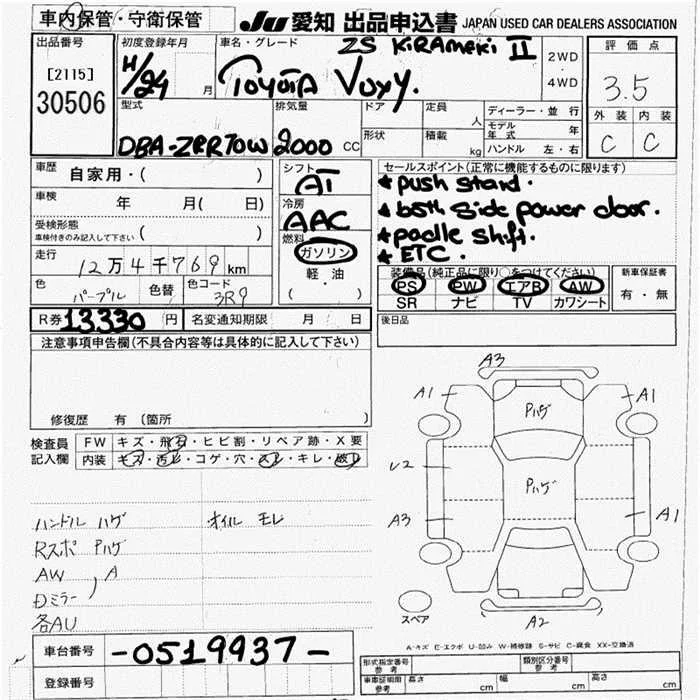 車内保管・守衛保管
JU 愛知 出品申込書 JAPAN USED CAR DEALERS ASSOCIATION
出品番号
[2115]
30506
初度登録年月
H/24 月
車名・グレード
ZS KiRAmeKi II
TOYOTA VOXY.
2WD
4WD
評価点
3.5
外装 内装
C C
型式
DBA-ZRR70W
排気量
2000 CC
ドア 定員 人
形状 積載 kg
ディーラー・並行
モデル年式 年
ハンドル 左・右
車歴
自家用・( )
車検
年 月( 日)
受検形態
車検付きのみ記入して下さい ( )
走行
12万4千769 km
色
パープル
色替
色コード
3R9
シフト
AT
冷房
AAC
燃料
ガソリン
軽・油
( ・ )
セールスポイント(正常に機能するものに限ります)
★push stard.
★both side power door.
★padle shift.
★ETC.
装備品(純正品に限り○をつけてください)
PS PW エアB AW
SR ナビ TV カワシート
新車保証書
有・無
R券 13,330 円
名変通知期限 月 日
後日品
注意事項申告欄(不具合内容等は具体的に記入して下さい)
修復歴 有 (箇所 )
検査員
記入欄
FW キズ・飛石・ヒビ割・リペア跡・X要
内装 キズ・汚レ・コゲ・穴・スレ・キレ・破レ
ハンドル ハゲ
オイル モレ
Rスポ Pハゲ
AW
Dミラー
A
各AU
A3
A1
Pハゲ
A1
Pハゲ
A3
A1
スペア
A2
A-キズ E-エクボ U-凹み W-補修跡 S-サビ C-腐食 XX-交換済
車台番号
-0519937-
登録番号
形式指定番号 参考
類別区分番号 参考
車庫証明用 参考
長さ cm
幅 cm
高さ cm